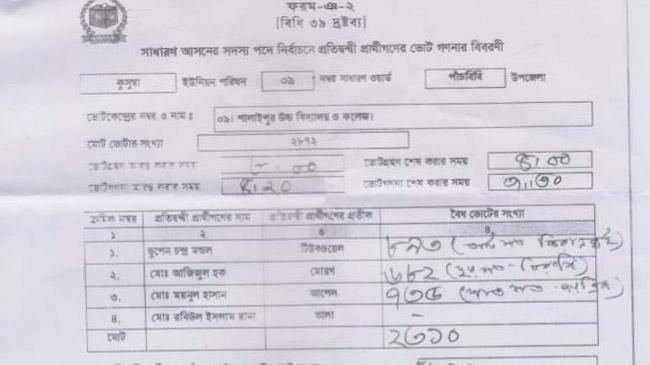 ফরম-ঞ-২
[বিধি ৩৯ দ্রষ্টব্য]
সাধারণ আসনের সদস্য পদে নির্বাচনে প্রতিদ্বন্দ্বী প্রার্থীগণের ভোট গণনার বিবরণী
কুসুম্বা ইউনিয়ন পরিষদ ০৯ নম্বর সাধারণ ওয়ার্ড পাঁচবিবি উপজেলা
ভোটকেন্দ্রের নম্বর ও নাম : ০৯। শালাইপুর উচ্চ বিদ্যালয় ও কলেজ।
মোট ভোটার সংখ্যা ২৮৭২
ভোটগ্রহণ শুরু করার সময় ৮.০০ ভোটগ্রহণ শেষ করার সময় ৪.০০
ভোটগণনা শুরু করার সময় ৪.২০ ভোটগণনা শেষ করার সময় ৭.৩০
ক্রমিক নম্বর প্রতিদ্বন্দ্বী প্রার্থীগণের নাম প্রতিদ্বন্দ্বী প্রার্থীগণের প্রতীক বৈধ ভোটের সংখ্যা
১ ২ ৩ ৪
১. চন্দ্র মন্ডল টিউবওয়েল ৮৯৩
২. মোঃ আজিজুল হক মোরগ ৬৮২
৩. মোঃ ময়নুল হাসান আপেল ৭৩৫
৪. মোঃ রবিউল ইসলাম রানা তালা -
মোট ২৩১০